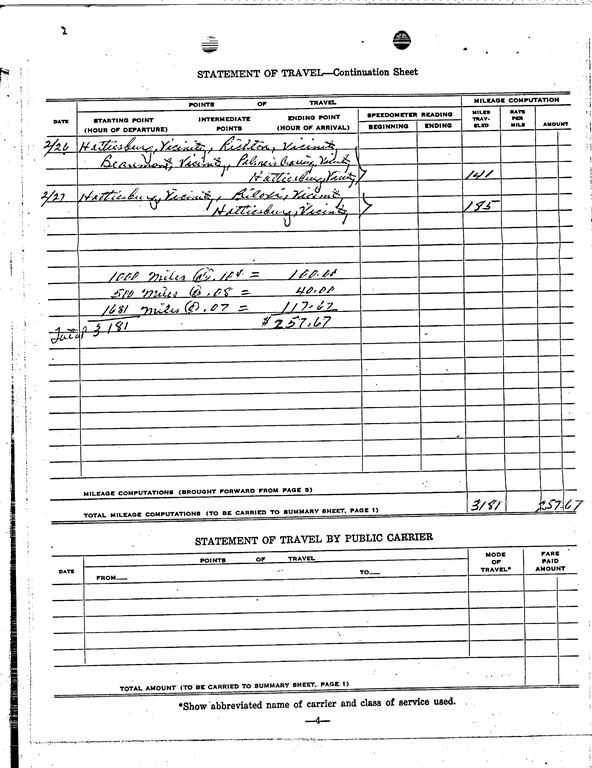 2
STATEMENT OF TRAVEL—Continuation Sheet
POINTS OF TRAVEL MILEAGE COMPUTATION
DATE STARTING POINT (HOUR OF DEPARTURE) INTERMEDIATE POINTS ENDING POINT (HOUR OF ARRIVAL) SPEEDOMETER READING BEGINNING ENDING MILES TRAV-ELED RATE PER MILE AMOUNT
2/26 Hattiesburg, Vicinity, Richton, Vicinity
Beaumont, Vicinity, Palmer's Crossing, Vicinity
Hattiesburg, Vicinity 141
2/27 Hattiesburg, Vicinity, Biloxi, Vicinity
Hattiesburg, Vicinity 185
1000 miles @ .10¢ = 100.00
500 miles @ .08 = 40.00
1681 miles @ .07 = 117.67
Total 3181 $257.67
MILEAGE COMPUTATIONS (BROUGHT FORWARD FROM PAGE 3)
TOTAL MILEAGE COMPUTATIONS (TO BE CARRIED TO SUMMARY SHEET, PAGE 1) 3181 257.67
STATEMENT OF TRAVEL BY PUBLIC CARRIER
DATE POINTS OF TRAVEL MODE OF TRAVEL* FARE PAID AMOUNT
FROM— TO—
TOTAL AMOUNT (TO BE CARRIED TO SUMMARY SHEET, PAGE 1)
*Show abbreviated name of carrier and class of service used.
—4—